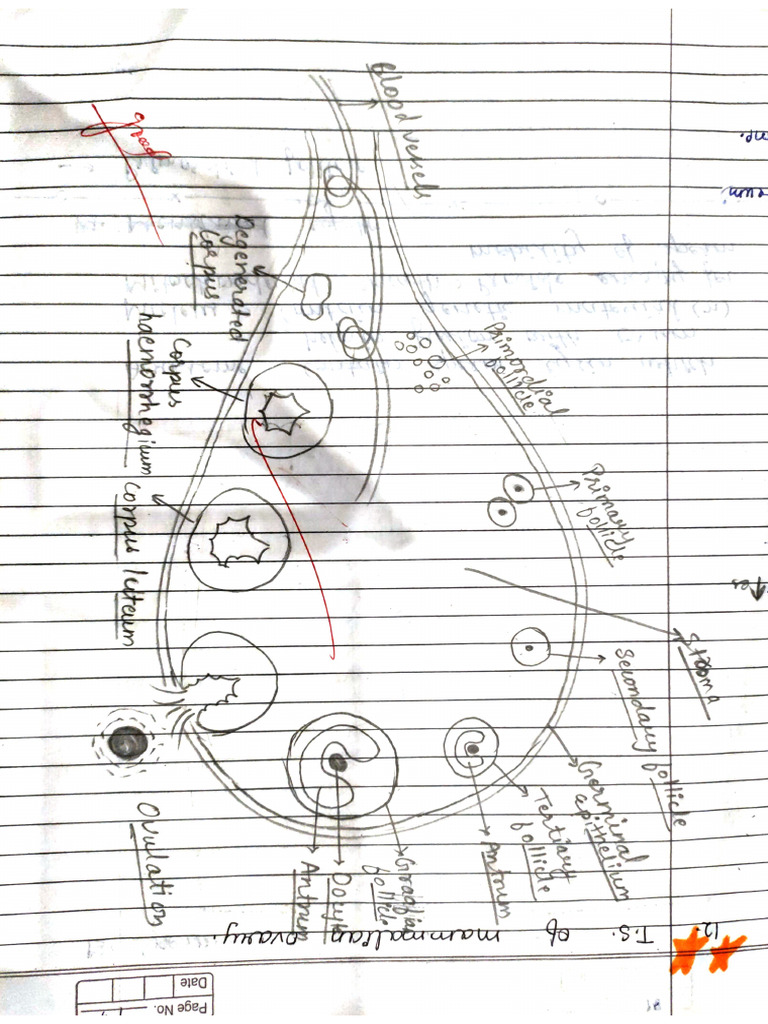 Page No.
Date
12. T.S. of mammalian ovary.
Blood vessels
Primordial
follicle
Primary
follicle
Stroma
Secondary follicle
Germinal
epithelium
Tertiary
follicle
Antrum
Graafian
follicle
Oocyte
Antrum
Ovulation
Corpus luteum
Corpus
haemorrhegium
Degenerated
Corpus